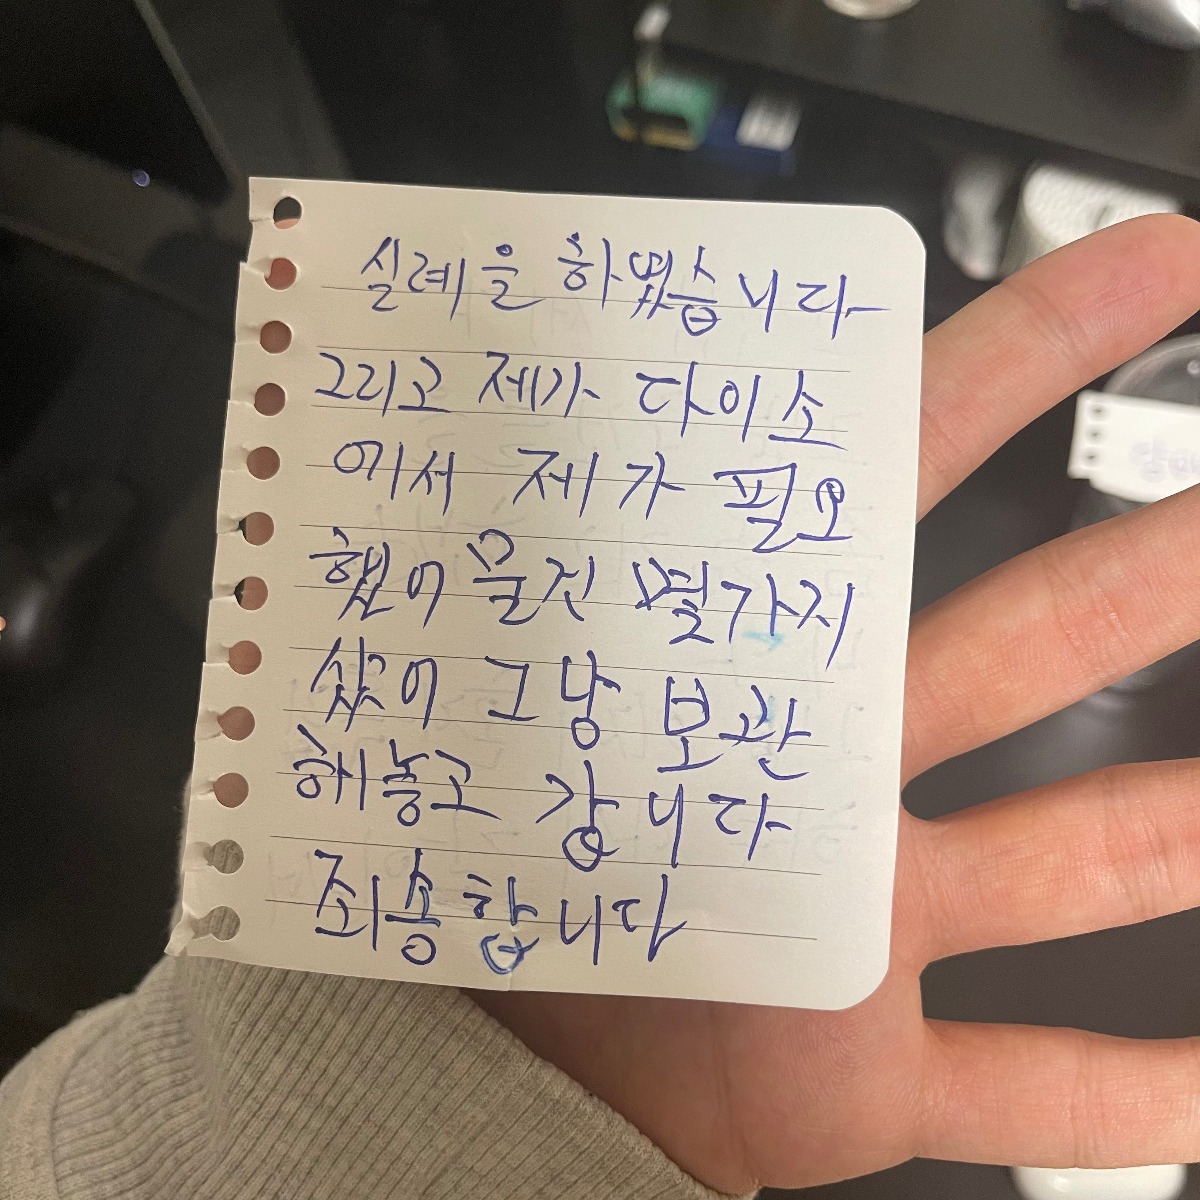 실례을 하였습니다
그리고 제가 다이소
에서 제가 필요
했어 물건 별가지
샀어 그냥 보관
해놓고 갑니다
죄송합니다